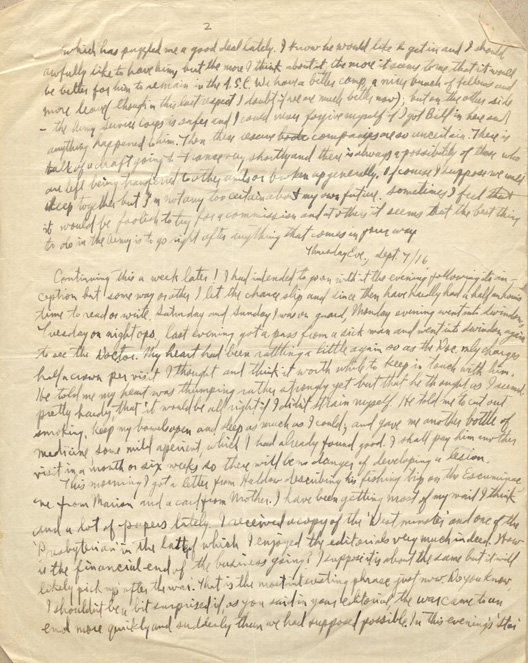 2
which has puzzled me a good deal lately. I know he would like to get in and I should
awfully like to have him but the more I think about it the more it seems to me that it would
be better for him to remain in the A.S.C. We have a better comp, a nicer bunch of fellows and
more leave (though in this last respect I doubt if we are much better now), but on the other side
- the Army Service Corps is safe and I could never forgive myself if I got Bill in here and
anything happened him. Then these companies are so uncertain. There is
talk of a draft going to France very shortly and there is always a possibility of those who
are left being transferred to other units or broken up generally, of course I suppose we would
keep together but I'm not any too certain about my own future. Sometimes I feel that
it would be foolish to try for a commission and at others it seems that the best thing
to do in the Army is to go right after anything that comes in your way
Thursday Eve, Sept 7/16
Continuing this a week later! I had intended to go on with it the evening following its in-
ception but some way or other I let the chance slip and since then have hardly had a half an hour's
time to read or write. Saturday and Sunday I was on guard, Monday evening went into Swindon,
Tuesday on night ops, last evening got a pass from a sick man and went into Swindon again
to see the Doctor. My heart had been rattling a little again so as the Doc. only charges
half a crown per visit I thought and think it worth while to keep in touch with him.
He told me my heart was thumping rather strongly yet but that he thought as I seemed
pretty hardy, that it would be all right if I didn't strain myself. He told me to cut out
smoking, keep my bowels open and sleep as much as I could; and gave me another bottle of
medicine some mild aperient, which I had already found good. I shall pay him another
visit in a month or six weeks so there will be no danger of developing a lesion.
This morning I got a letter from Haldow describing his fishing trip on the Escuminac
one from Marion and a card from Mother. I have been getting most of my mail I think
and a lot of papers lately. I received a copy of the 'Westminster' and one of the
'Presbyterian' in the latter of which I enjoyed the editorials very much indeed. How
is the financial end of the business going? I suppose it is about the same but it will
likely pick up 'after the war'. That is the most interesting phrase just now. Do you know
I shouldn't be a bit surprised if, as you said in your editorial the war came to an
end more quickly and suddenly than we had supposed possible. In this evening's 'Star'